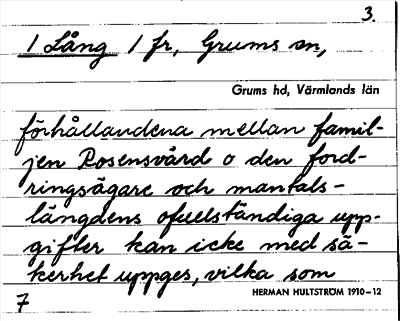 3.
1 Lång 1 fr, Grums sn,
Grums hd, Värmlands län
förhållandena mellan famil-
jen Rosensvärd o den ford-
ringsägare och mantals-
längdens ofuelständiga upp-
gifter kan icke med sä-
kerhet uppges, vilka som
HERMAN HULTSTRÖM 1910-12
7